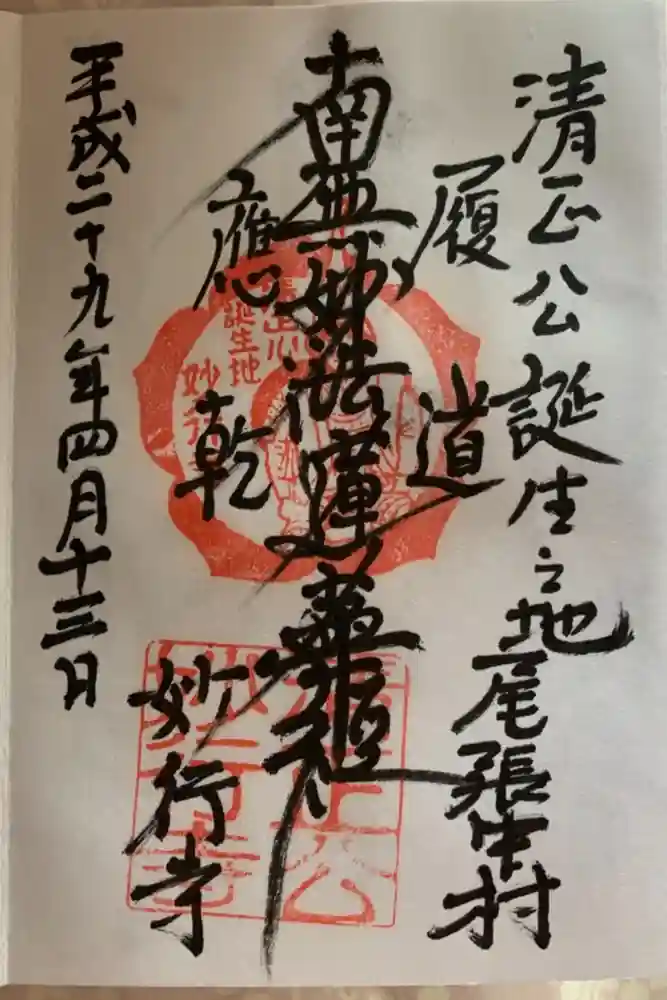 清正公誕生之地
尾張中村
履道
南無妙法蓮華経
應乾
妙行寺
平成二十九年四月十三日
誕生地
妙行